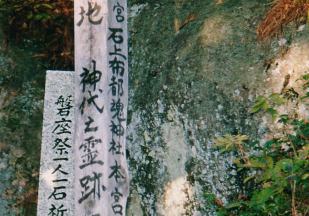 宮石上布都魂神社本宮
地 神代土霊跡
磐座祭一人一石祈